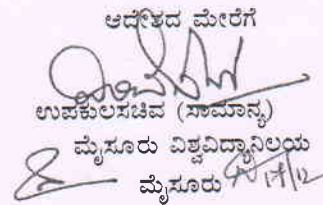 ಆದೇಶದ ಮೇರೆಗೆ
ಉಪಕುಲಸಚಿವ (ಸಾಮಾನ್ಯ)
ಮೈಸೂರು ವಿಶ್ವವಿದ್ಯಾನಿಲಯ
ಮೈಸೂರು